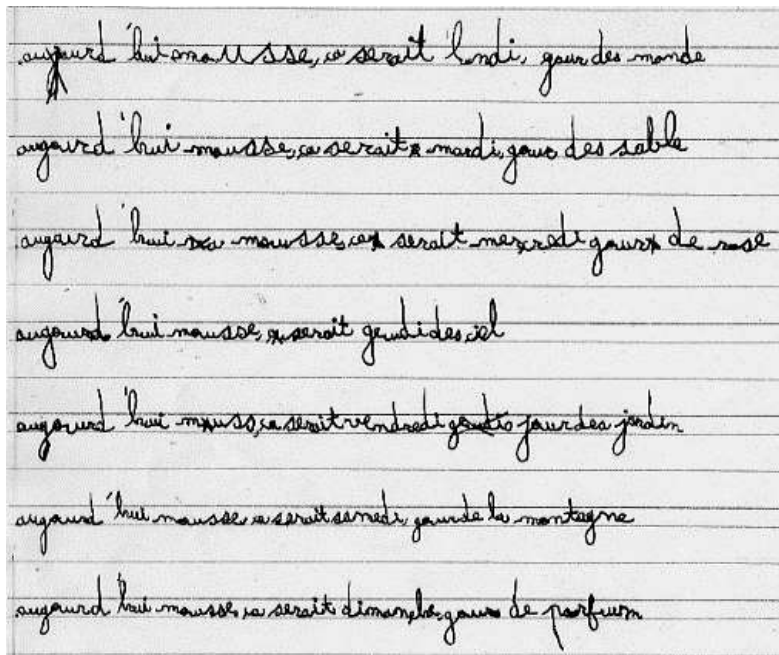 aujourd'hui mousse, ca serait lundi, gour des monde
augourd'hui mousse, ca serait mardi, gour des sable
augourd'hui mousse, ca serait mercredi gour de rose
augourd'hui mousse, ca serait geudi des ciel
augourd'hui mouss, ca serait vendredi jour des jardin
augourd'hui mousse, ca serait samedi, gour de la montagne
augourd'hui mousse, ca serait dimanche, gour de parfum